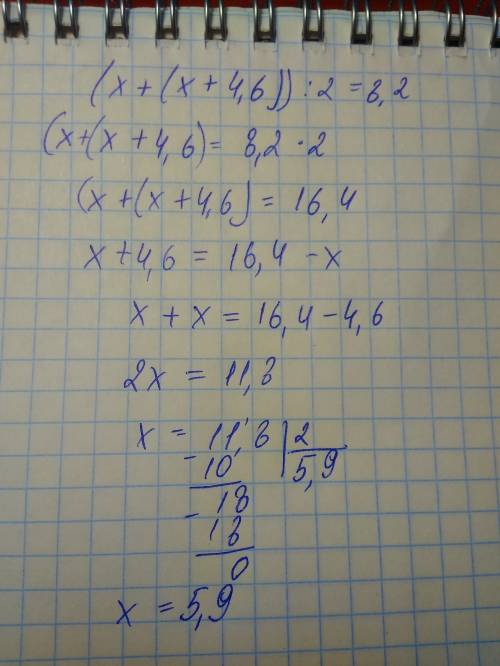 (x + (x + 4,6)) : 2 = 8,2
(x+(x + 4,6) = 8,2 · 2
(x + (x + 4,6) = 16,4
x + 4,6 = 16,4 - x
x + x = 16,4 - 4,6
2x = 11,8
x = 11,8 | 2
- 10 5,9
- 18
18
0
x = 5,9